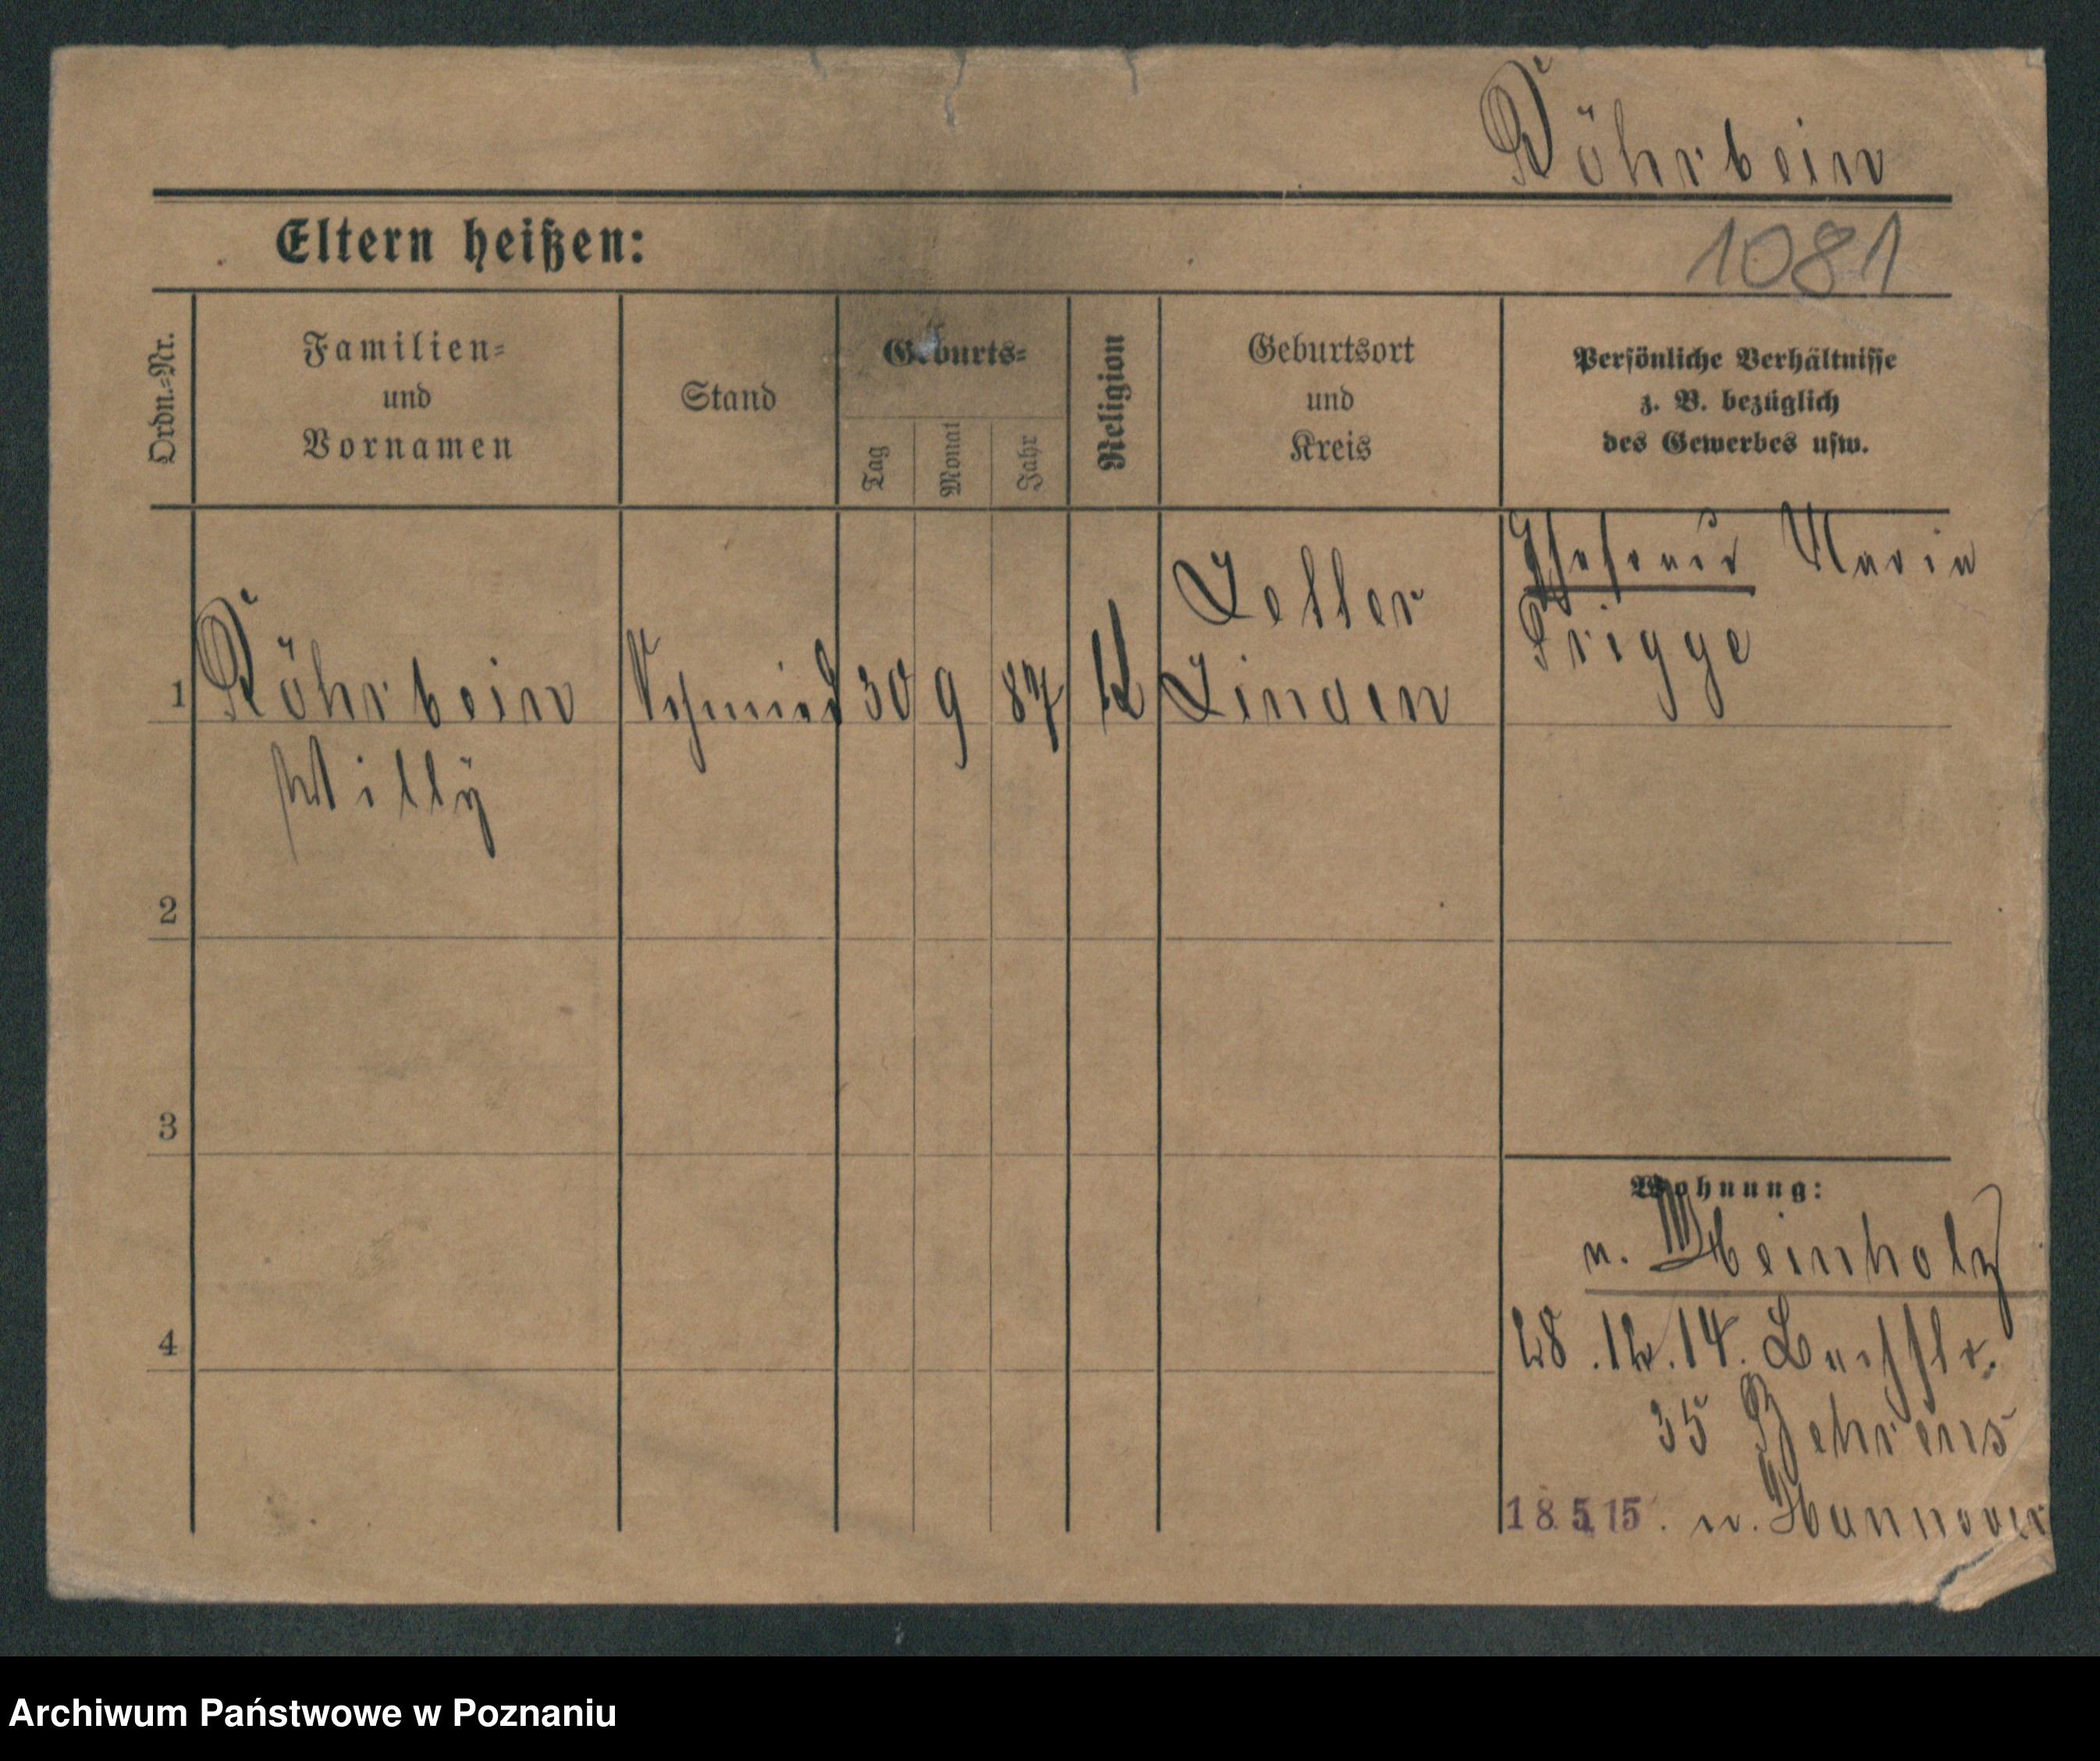 Röhrbein
Eltern heißen:
1081
Ordn.=Nr.
Familien=
und
Vornamen
Stand
Geburts=
Tag
Monat
Jahr
Religion
Geburtsort
und
Kreis
Persönliche Verhältnisse
z. B. bezüglich
des Gewerbes usw.
1
Röhrbein
Willy
Schmied
30
9
87
Linden
Ehefrau Maria
Prigge
2
3
4
Wohnung:
Meinholz
28.12.14.
35 Behrens
18.5.15. n. Hannover
Archiwum Państwowe w Poznaniu